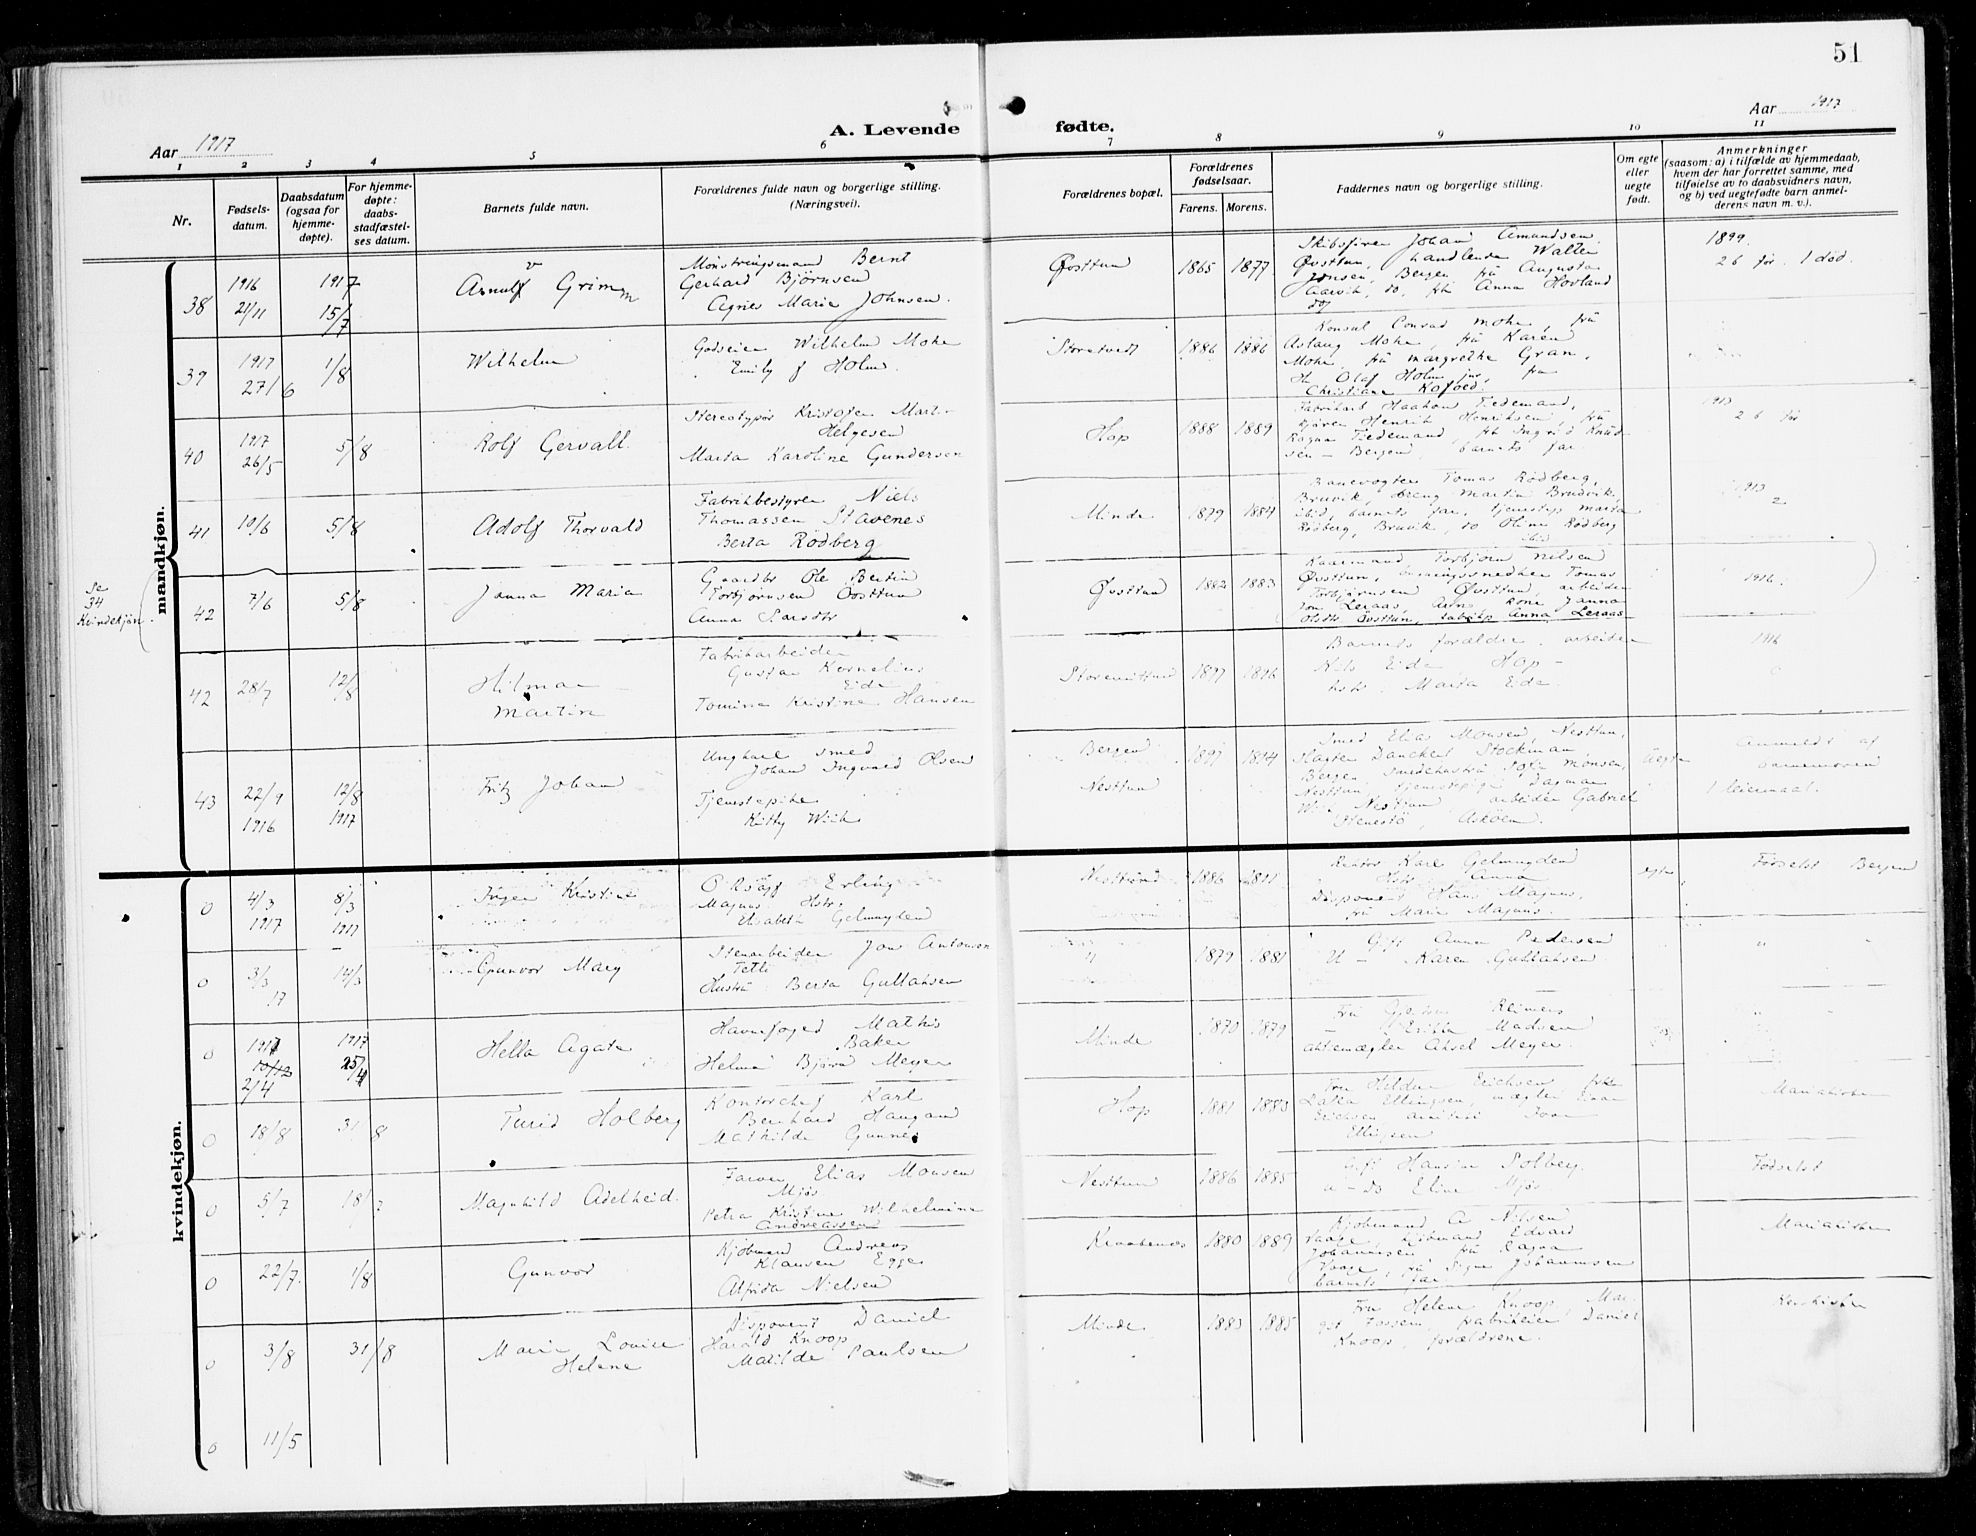 51
Aar 1917
A. Levende
fødte.
Aar 1917
1 2 3 4 5 6 7 8 9 10 11
Nr.
Fødsels-
datum.
Daabsdatum
(ogsaa for
hjemme-
døpte).
For hjemme-
døpte:
daabs-
stadfæstel-
ses datum.
Barnets fulde navn.
Forældrenes fulde navn og borgerlige stilling.
(Næringsvei).
Forældrenes bopæl.
Forældrenes
fødselsaar.
Farens. Morens.
Faddernes navn og borgerlige stilling.
Om egte
eller
uegte
født.
Anmerkninger
(saasom: a) i tilfælde av hjemmedaab,
hvem der har forrettet samme, med
tilføielse av to daabsvidners navn,
og b) ved uegtefødte barn anmel-
derens navn m. v.).
mandkjøn.
38
1916
21/11
1917
15/7
Arnulf Grimm
Mønstringsmand Bernt
Gerhard Bjørnsen
Agnes Marie Johnsen.
Øvsttun
1865 1877
Johan Amundsen
Øvsttun, handlende Walter
Jonsen, Bergen frk Augusta
Aarvik, do, frk Anna Hovland
1899.
26 før. 1 død.
39
1917
27/6
1/8
Wilhelm
Godseier Wilhelm Mohr
Emily f Holm.
Storetvedt
1886 1886
Konsul Conrad Mohr, fru
Aslaug Mohr, fru Karen
Mohr, fru Margrethe Gran,
Hr Olaf Holm jun, fru
Christiane Kofoed.
40
1917
26/5
5/8
Rolf Gervall
Stereotypør Kristofer Mart-
Helgesen
Marta Karoline Gundersen
Hop
1888 1889
Fabrikarb Haakon Tiedemand,
Henrik Henriksen, fru
Ragna Tiedemand, frk Ingrid Knud-
sen - Bergen, barnets far.
1913
2 b før
41
10/6
5/8
Adolf Thorvald
Fabrikbestyrer Niels
Thomassen Stavenes
Berta Rødberg
Minde
1879 1884
Banevogter Tomas Rødberg,
Bruvik, dreng Martin Brudvik,
ibid, barnets far, tjenestep Marta
Rødberg, Bruvik, do Oline Rødberg
ibid
1913
2
Se
34
Kvindekjøn
42
7/6
5/8
Janna Marie
Gaardbr Ole Bertin
Torbjørnsen Øvsttun
Anna Larsdtr
Øvsttun
1882 1883
Kaarmand Torbjørn Nilsen
Øvsttun, Tomas
Torbjørnsen Øvsttun, arbeider
Jon Leraas, kone Janna
Olsdtr Øvsttun, Anna Leraas
1916.
42
28/7
12/8
Hilmar
Martin
Fabrikarbeider
Gustav Kornelius
Eide
Tomine Kristine Hansen
1897 1896
Barnets forældre, arbeider
Nils Eide, Hop -
hstr. Marta Eide.
1916
43
22/9
1916
12/8
1917
Fritz Johan
Ungkarl smed
Johan Ingvald Olsen
Tjenestepike
Kitty Wiik.
Bergen
Nesttun
1897 1894
Smed Elias Monsen, Nesttun,
Slagter Danckert Stockman,
Bergen, smedehustru Sofie Monsen,
Nesttun, tjenestepige Dagmar
Wiik Nesttun, arbeider Gabriel
Stenestø, Askøen.
Uegte
Anmeldt af
barnemoren
1 leiermaal.
kvindekjøn.
0
4/3
1917
8/3
1917
Inger Kristine
Erling
Magnus Hstr.
Elisabeth Gelmuyden
Nesttun
1886
Rektor Karl Gelmuyden
Hstr Anna
Disponent Hans Magnus,
fru Marie Magnus.
egte
Fødselst Bergen
0
3/3
17
14/3
Gunvor Mary
Stenarbeider Jon Antonson
Tetli
Hustru Berta Gullaksen
"
1879 1881
Gift Anna Pedersen
U - Karen Gullaksen
"
0
1917
10/12
2/4
1917
25/4
Hella Agate
Havnefoged Mathis
Baker
Helma Bjørn Meyer
Minde
1870 1879
Fru Reimers
- Madsen
aktemægler Aksel Meyer.
"
0
18/8
31 8
Turid Holberg
Kontorchef Karl
Bernhard Haugand
Mathilde Gunner
Hop
1881 1883
Fru Hildur Erichsen, frk
Dakka Ellingsen, mægler Einar
Erichsen Ivar
Ellingsen
0
5/7
18/7
Magnhild Adelheid.
Farver Elias Monsen
Mjøs
Petra Kristine Wilhelmine
Andreassen
Nesttun
1886 1885
Gift Hansine Solberg.
u - do Eline Mjøs
Fødselst
0
22/7.
1/8
Gunvor
Kjøbmand Andreas
Klausen Egge
Alfrida Nielsen
Kraakenes
1880 1889
Kjøbmand A Nilsen
Vaage, kjøbmand Edvard
Johannesen, fru Ragna
Vaage, fru Signe Johannesen
barnets far
0
3/8
31/8
Marie Louise
Helene
Disponent Daniel
Harald Knoop
Matilde Paulsen
Minde.
1883 1885
Fru Helene Knoop, Mar-
grt Fossem, fabrikeier Daniel
Knoop, forældrene.
0
11/5